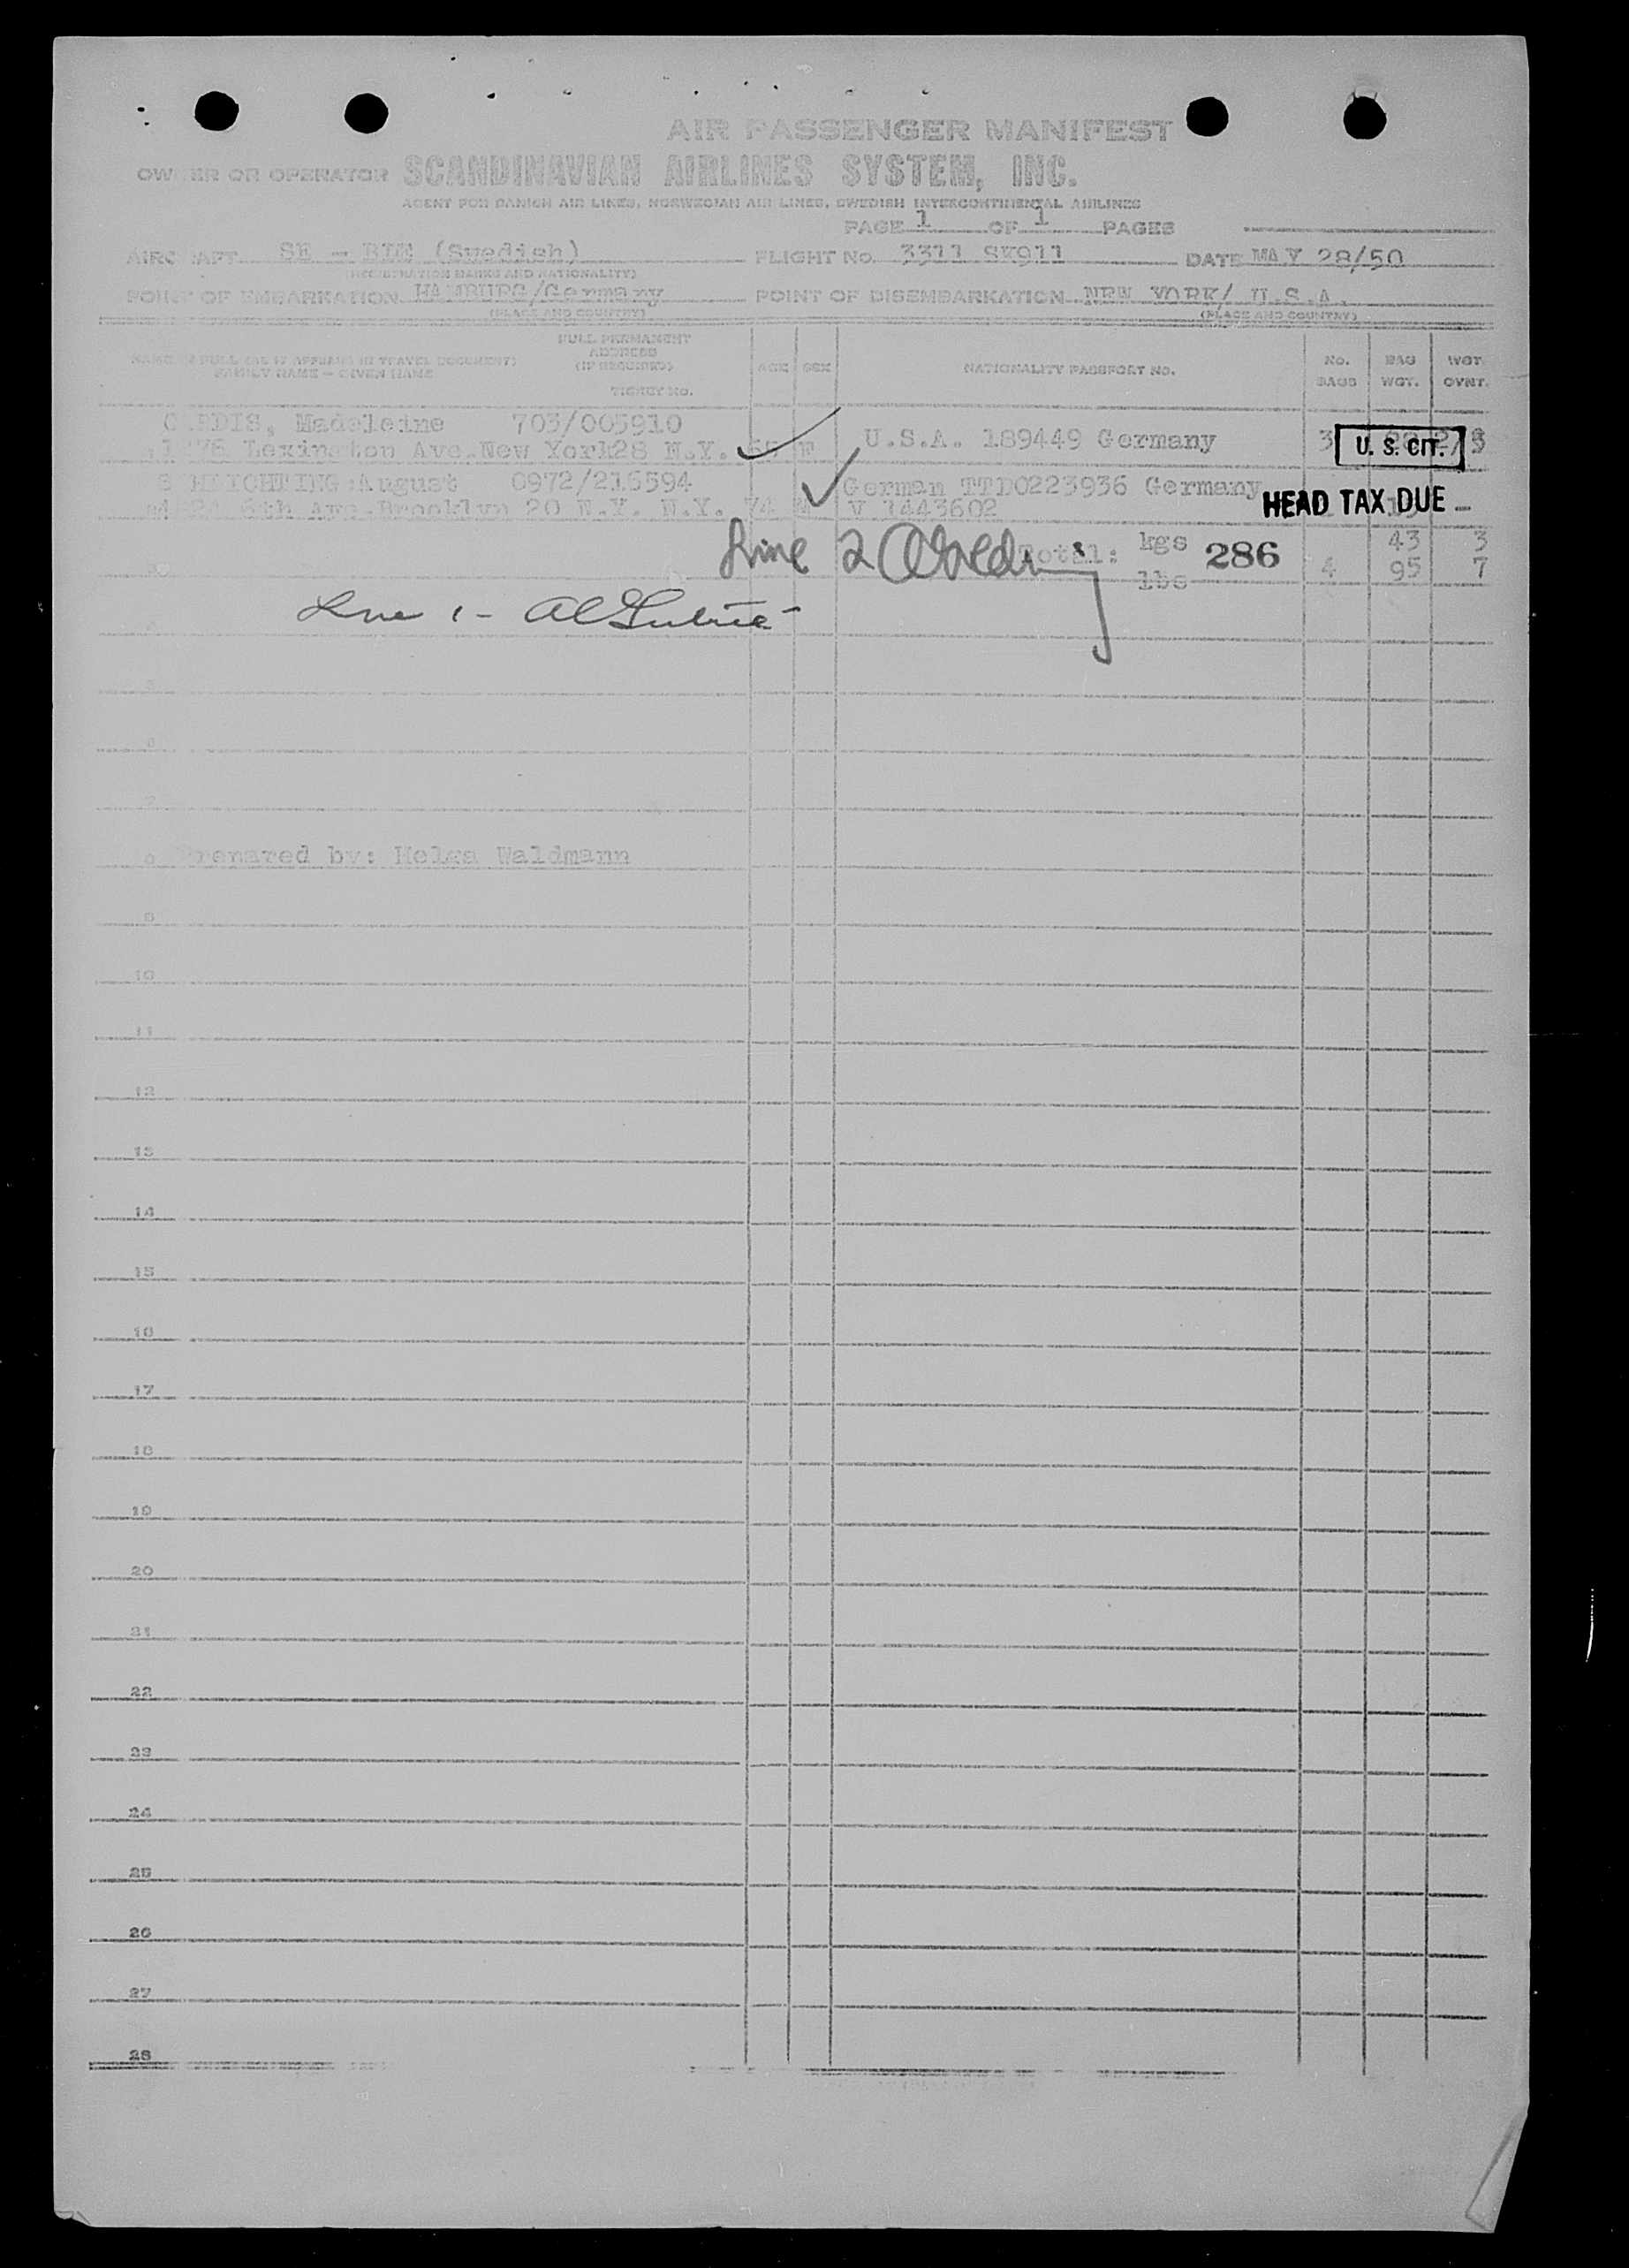 AIR PASSENGER MANIFEST
OWNER OR OPERATOR SCANDINAVIAN AIRLINES SYSTEM, INC.
AGENT FOR DANISH AIR LINES, NORWEGIAN AIR LINES, SWEDISH INTERCONTINENTAL AIRLINES
PAGE 1 OF 1 PAGES
AIRCRAFT SE - (Swedish) FLIGHT NO. 3311 SK911 DATE MAY 28/50
(REGISTRATION MARKS AND NATIONALITY)
POINT OF EMBARKATION HAMBURG/Germany POINT OF DISEMBARKATION NEW YORK/ U.S.A.
(PLACE AND COUNTRY) (PLACE AND COUNTRY)
NAME IN FULL (AS IT APPEARS IN TRAVEL DOCUMENT) FAMILY NAME – GIVEN NAME
FULL PERMANENT ADDRESS (IF REQUIRED) TICKET NO.
AGE SEX NATIONALITY PASSPORT NO. NO. BAGS BAG WGT. WGT. OVNT.
Madeleine 703/005910
Lexington Ave. New York 28 N.Y. F U.S.A. 189449 Germany 3
U. S. CIT.
August 0972/216594 German TTD0223936 Germany
6th Ave. Brooklyn 20 N.Y. N.Y. 74 M V 1443602
HEAD TAX DUE
Line 2
Total: kgs 286 43 3
lbs 4 95 7
Line 1 -
5
6
7
8 Prepared by: Helga Waldmann
9
10
11
12
13
14
15
16
17
18
19
20
21
22
23
24
25
26
27
28